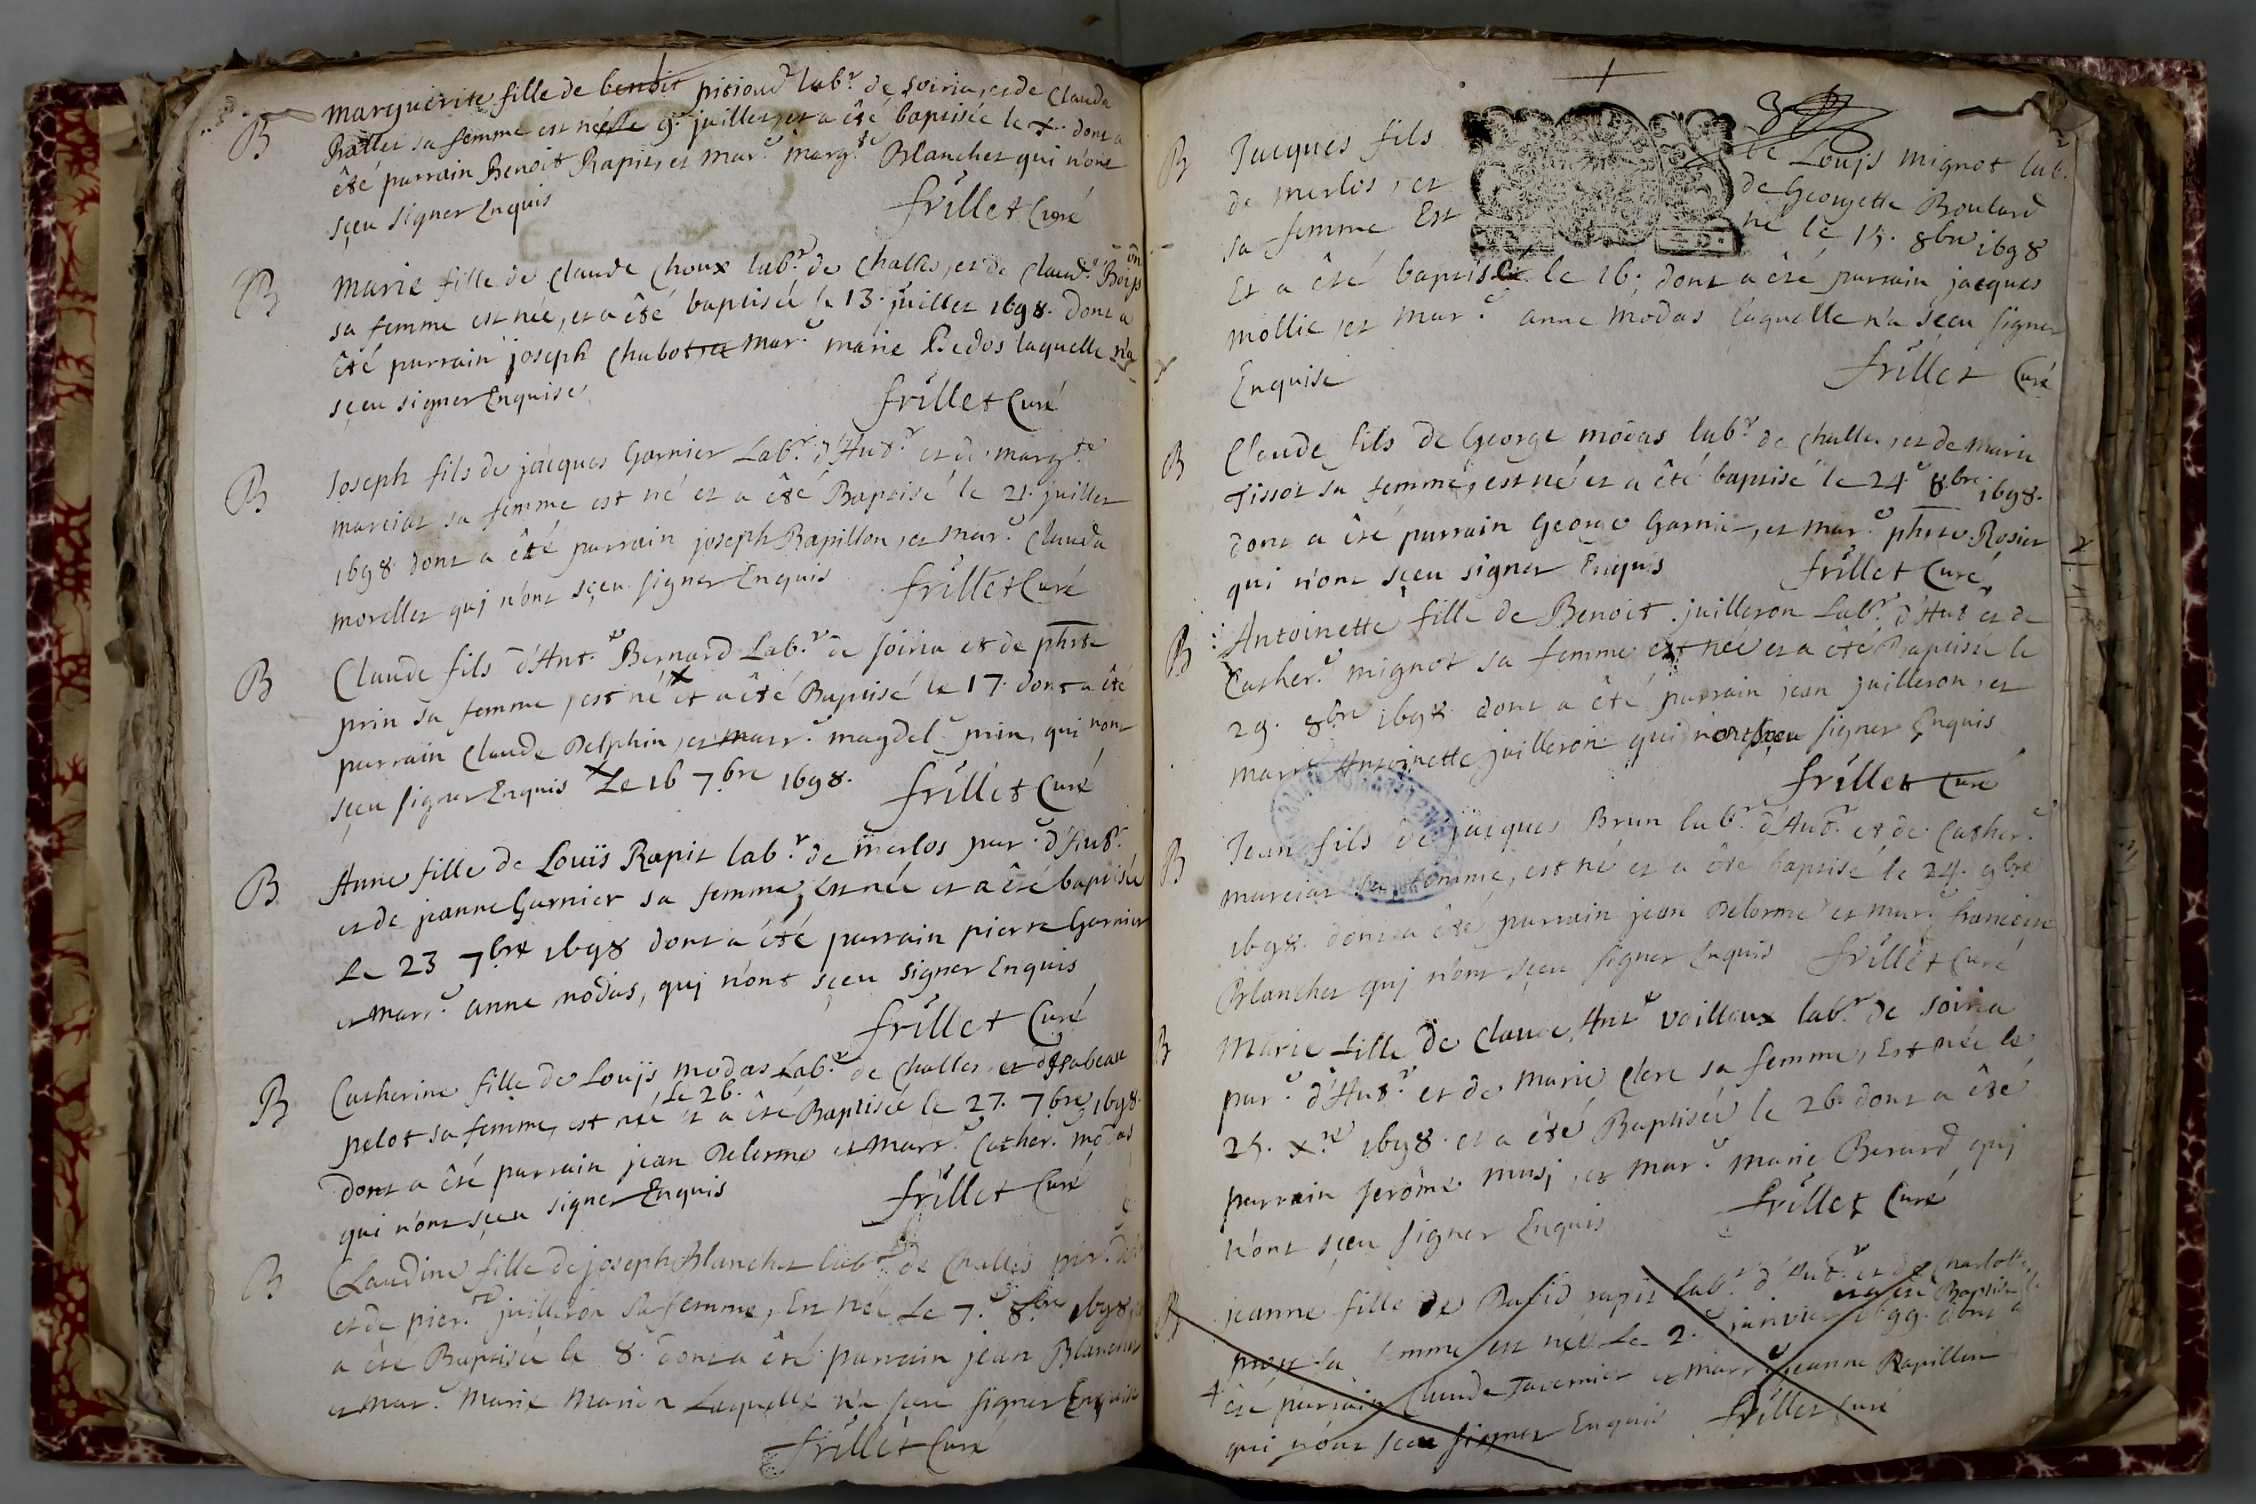 B
Marguerite fille de benoit pitioud lab.r de soiria, et de Clauda
Rattet sa femme est née le 9. juillet, et a été baptisée le x. dont a
été parrain Benoit Rapit, et mar.e marg.te Blanchet qui n'ont
sçeu signer Enquis
frillet Curé
B
Marie fille de Claude Choux lab.r de Challes, et de Claud.e Boisson
sa femme est née, et a été baptisée le 13. juillet 1698. dont a
été parrain joseph Chabot, et mar.e marie Bedos laquelle n'a
sçeu signer Enquise
frillet Curé
B
Joseph fils de jacques Garnier Lab.r d'Aut.r et de marg.te
marciat sa femme est né et a été Baptisé le 21. juillet
1698 dont a été parrain joseph Rapillon, et mar.e Clauda
morellet quj n'ont sçeu signer Enquis
frillet Curé
B
Claude fils d'Ant.e Bernard Lab.r de soiria et de phste
prin sa femme, est né x et a été Baptisé le 17. dont a été
parrain Claude Delphin, et marr.e magdel.e prin, qui n'ont
sçeu signer Enquis x Le 16 7.bre 1698.
frillet Curé
B
Anne fille de Louis Rapit lab.r de merlos par.e d'Aut.r
et de jeanne Garnier sa femme, Est née et a été baptisée
Le 23 7bre 1698 dont a été parrain pierre Garnier
et marr.e anne modas, quj n'ont sçeu signer Enquis
frillet Curé
B
Catherine fille de Louijs modas Lab.r de Challes et d'Isabeau
Le 26.
pelot sa femme, est née et a été Baptisée le 27. 7bre 1698.
dont a été parrain jean Delorme et marr.e Cather. modas
qui n'ont sçeu signer Enquis
frillet Curé
B
Claudine fille de joseph Blanchet lab.r de Challes par.
et de pier.te juilleron sa femme, Est née Le 7.e 8bre 1698,
a été Baptisée le 8. dont a été parrain jean Blanchet
et mar.e Marie Marion Laquelle n'a sçeu signer Enquise
frillet Curé
3
B
Jacques fils de Louijs mignot lab.r
de merlos, et de Georgette Boulard
sa femme Est né le 15. 8bre 1698
Et a été baptisé le 16. dont a été parrain jacques
mollie, et mar.e anne modas laquelle n'a sçeu signer
Enquise
frillet Curé
B
Claude fils de George modas lab.r de Challes, et de marie
Tissot sa femme, est né et a été baptisé le 24.e 8bre 1698.
dont a été parrain George Garnier, et mar.e phste Rosier
qui n'ont sçeu signer Enquis
frillet Curé
B
Antoinette fille de Benoit juilleron Lab.r d'Aut et de
Cather.e mignot sa femme est née et a été Baptisée le
29. 8bre 1698. dont a été parrain jean juilleron, et
marr.e Antoinette juilleron qui n'ont sçeu signer Enquis
frillet Curé
B
Jean fils de jacques Brun lab.r d'Aut.r et de Cather.e
marciat sa femme, est né et a été baptisé le 24. 9bre
1698. dont a été parrain jean Delorme et mar.e francoise
Blanchet quj n'ont sçeu signer Enquis
frillet Curé
B
Marie fille de Claude Ant.e voilloux lab.r de soiria
par.e d'Aut.r et de Marie Clerc sa femme, Est née le
25. x.re 1698. et a été Baptisée le 26. dont a été
parrain jerôme musj, et mar.e marie Berard quj
n'ont sçeu signer Enquis
frillet Curé
B
jeanne fille de David rapit lab.r d'Aut.r et de Charlotte
et a été Baptisée le
sa femme est née Le 2.e janvier 1699. dont a
été parrain Claude Tavernier et marr.e jeanne Rapillon
qui n'ont sçeu signer Enquis
frillet Curé